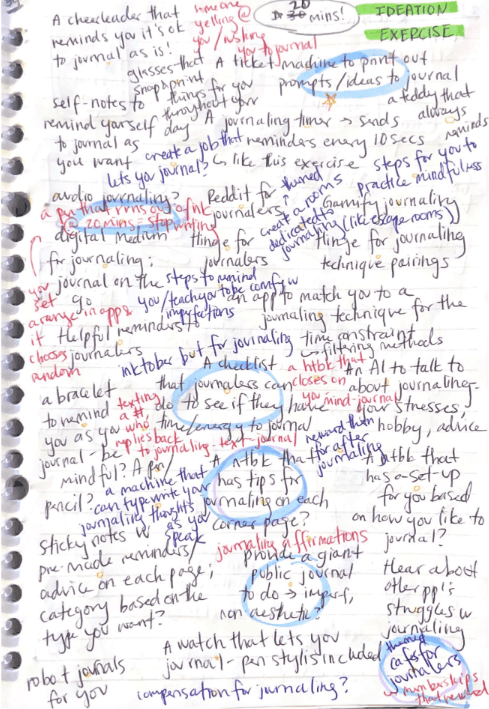 20
30 mins!
IDEATION
EXERCISE
A cheerleader that
reminds you it's ok
to journal as is!
someone
yelling @
you / pushing
you to journal
glasses that
snap & print
things for you
throughout your
day
A ticket machine to print out
prompts/ideas to journal
self-notes to
remind yourself
to journal as
you want
A journaling timer → sends
reminders every 10 secs
↳ like this exercise
a teddy that
always
reminds
create a job that
lets you journal?
steps for you to
practice mindfulness
audio journaling?
a pen that runs out of ink
@ 20 mins = stop writing
Reddit for
journalers
themed
create a rooms
dedicated to
journaling (like escape rooms)
Gamify journaling
digital medium
for journaling:
journal on the
go
Hinge for
journalers
Hinge for journaling
technique pairings
you
set
a range in apps
it
chooses
random
steps to remind
you/teach you to be comfy w
imperfections
an app to match you to a
journaling technique for the
time constraint
↳ filtering methods
Helpful reminders!!
journalers
inktober but for journaling
A checklist
that journalers can
do to see if they have
time/energy to journal
a ntbk that
closes on
you mind-journal
An AI to talk to
about journaling-
your stresses,
hobby, advice
a bracelet
to remind
you as you
journal - be
mindful? A pen/
pencil?
texting
a #
who
replies back
to journaling - text-journal
reward them
for after
journaling
a machine that
can type write your
journaling thoughts
as you
speak
A ntbk that
has tips for
journaling on each
corner page?
A ntbk that
has a set-up
for you based
on how you like to
journal?
Sticky notes w
pre-made reminders/
advice on each page,
category based on the
type you want?
journaling affirmations
Provide a giant
public journal
to do → imperf,
non aesthetic?
Hear about
other ppl's
struggles w
journaling
A watch that lets you
journal - pen stylis included
themed
cafes for
journalers
w memberships
that reward
robot journals
for you
compensation for journaling?